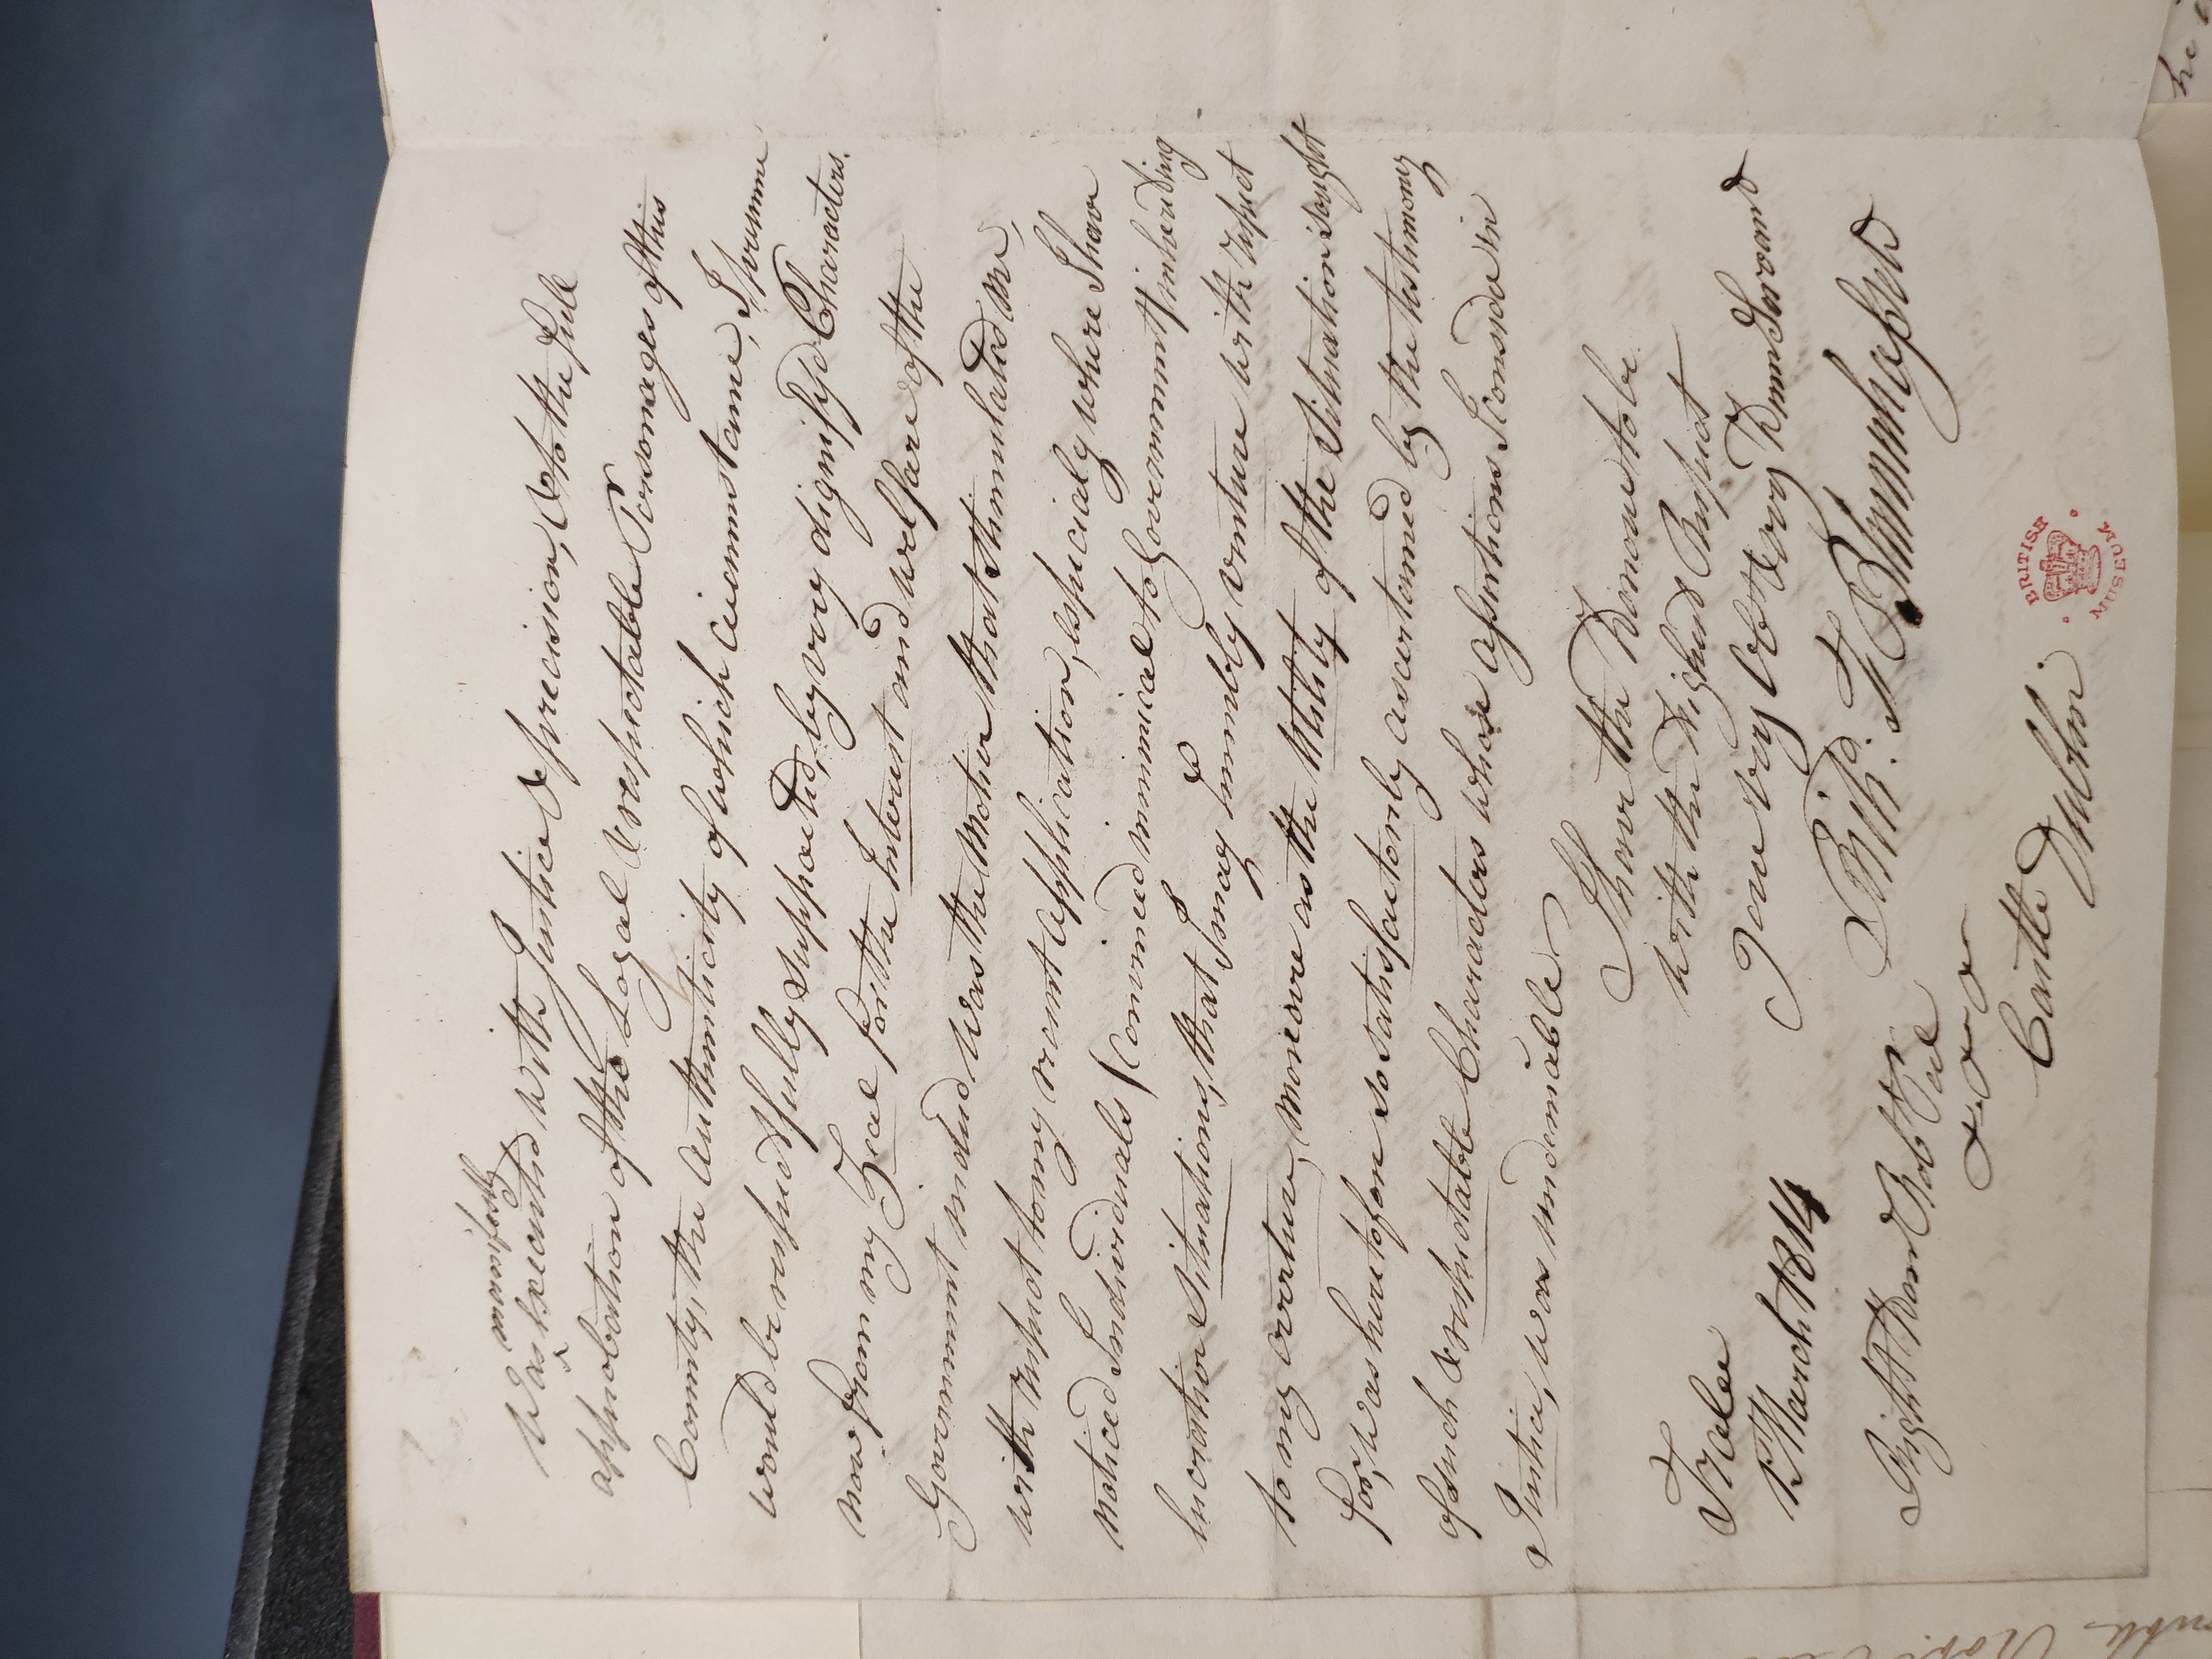 manifestly
Was executed with Justice & precision, & to the full
approbation of the Loyal & respectable Personages of this
County, the authenticity of which circumstance, I presume
would be respectfully supported, by very dignifyd Characters.
now from my Zeal for the Interest and welfare of the
Government indeed was the motive that stimulated me,
with respect to my recent application, especialy where I have
noticed Individuals (conceived inimical to Government) inheriting
lucrative Situations, that I may humbly venture with respect
to my overture, moreover as the Utility of the Situation sought
for, was heretofore so satisfactorily ascertained by the testimony
of such respectable Characters whose assertions I consider in
Justice, was undeniable
I have the Honour to be
with the highest Respect
your very Obt & very Humb Servant
Richd. F. Blennerhassett
Tralee
15 March 1814
Right Honr Robt Peel
& & &
Castle Dublin
BRITISH MUSEUM